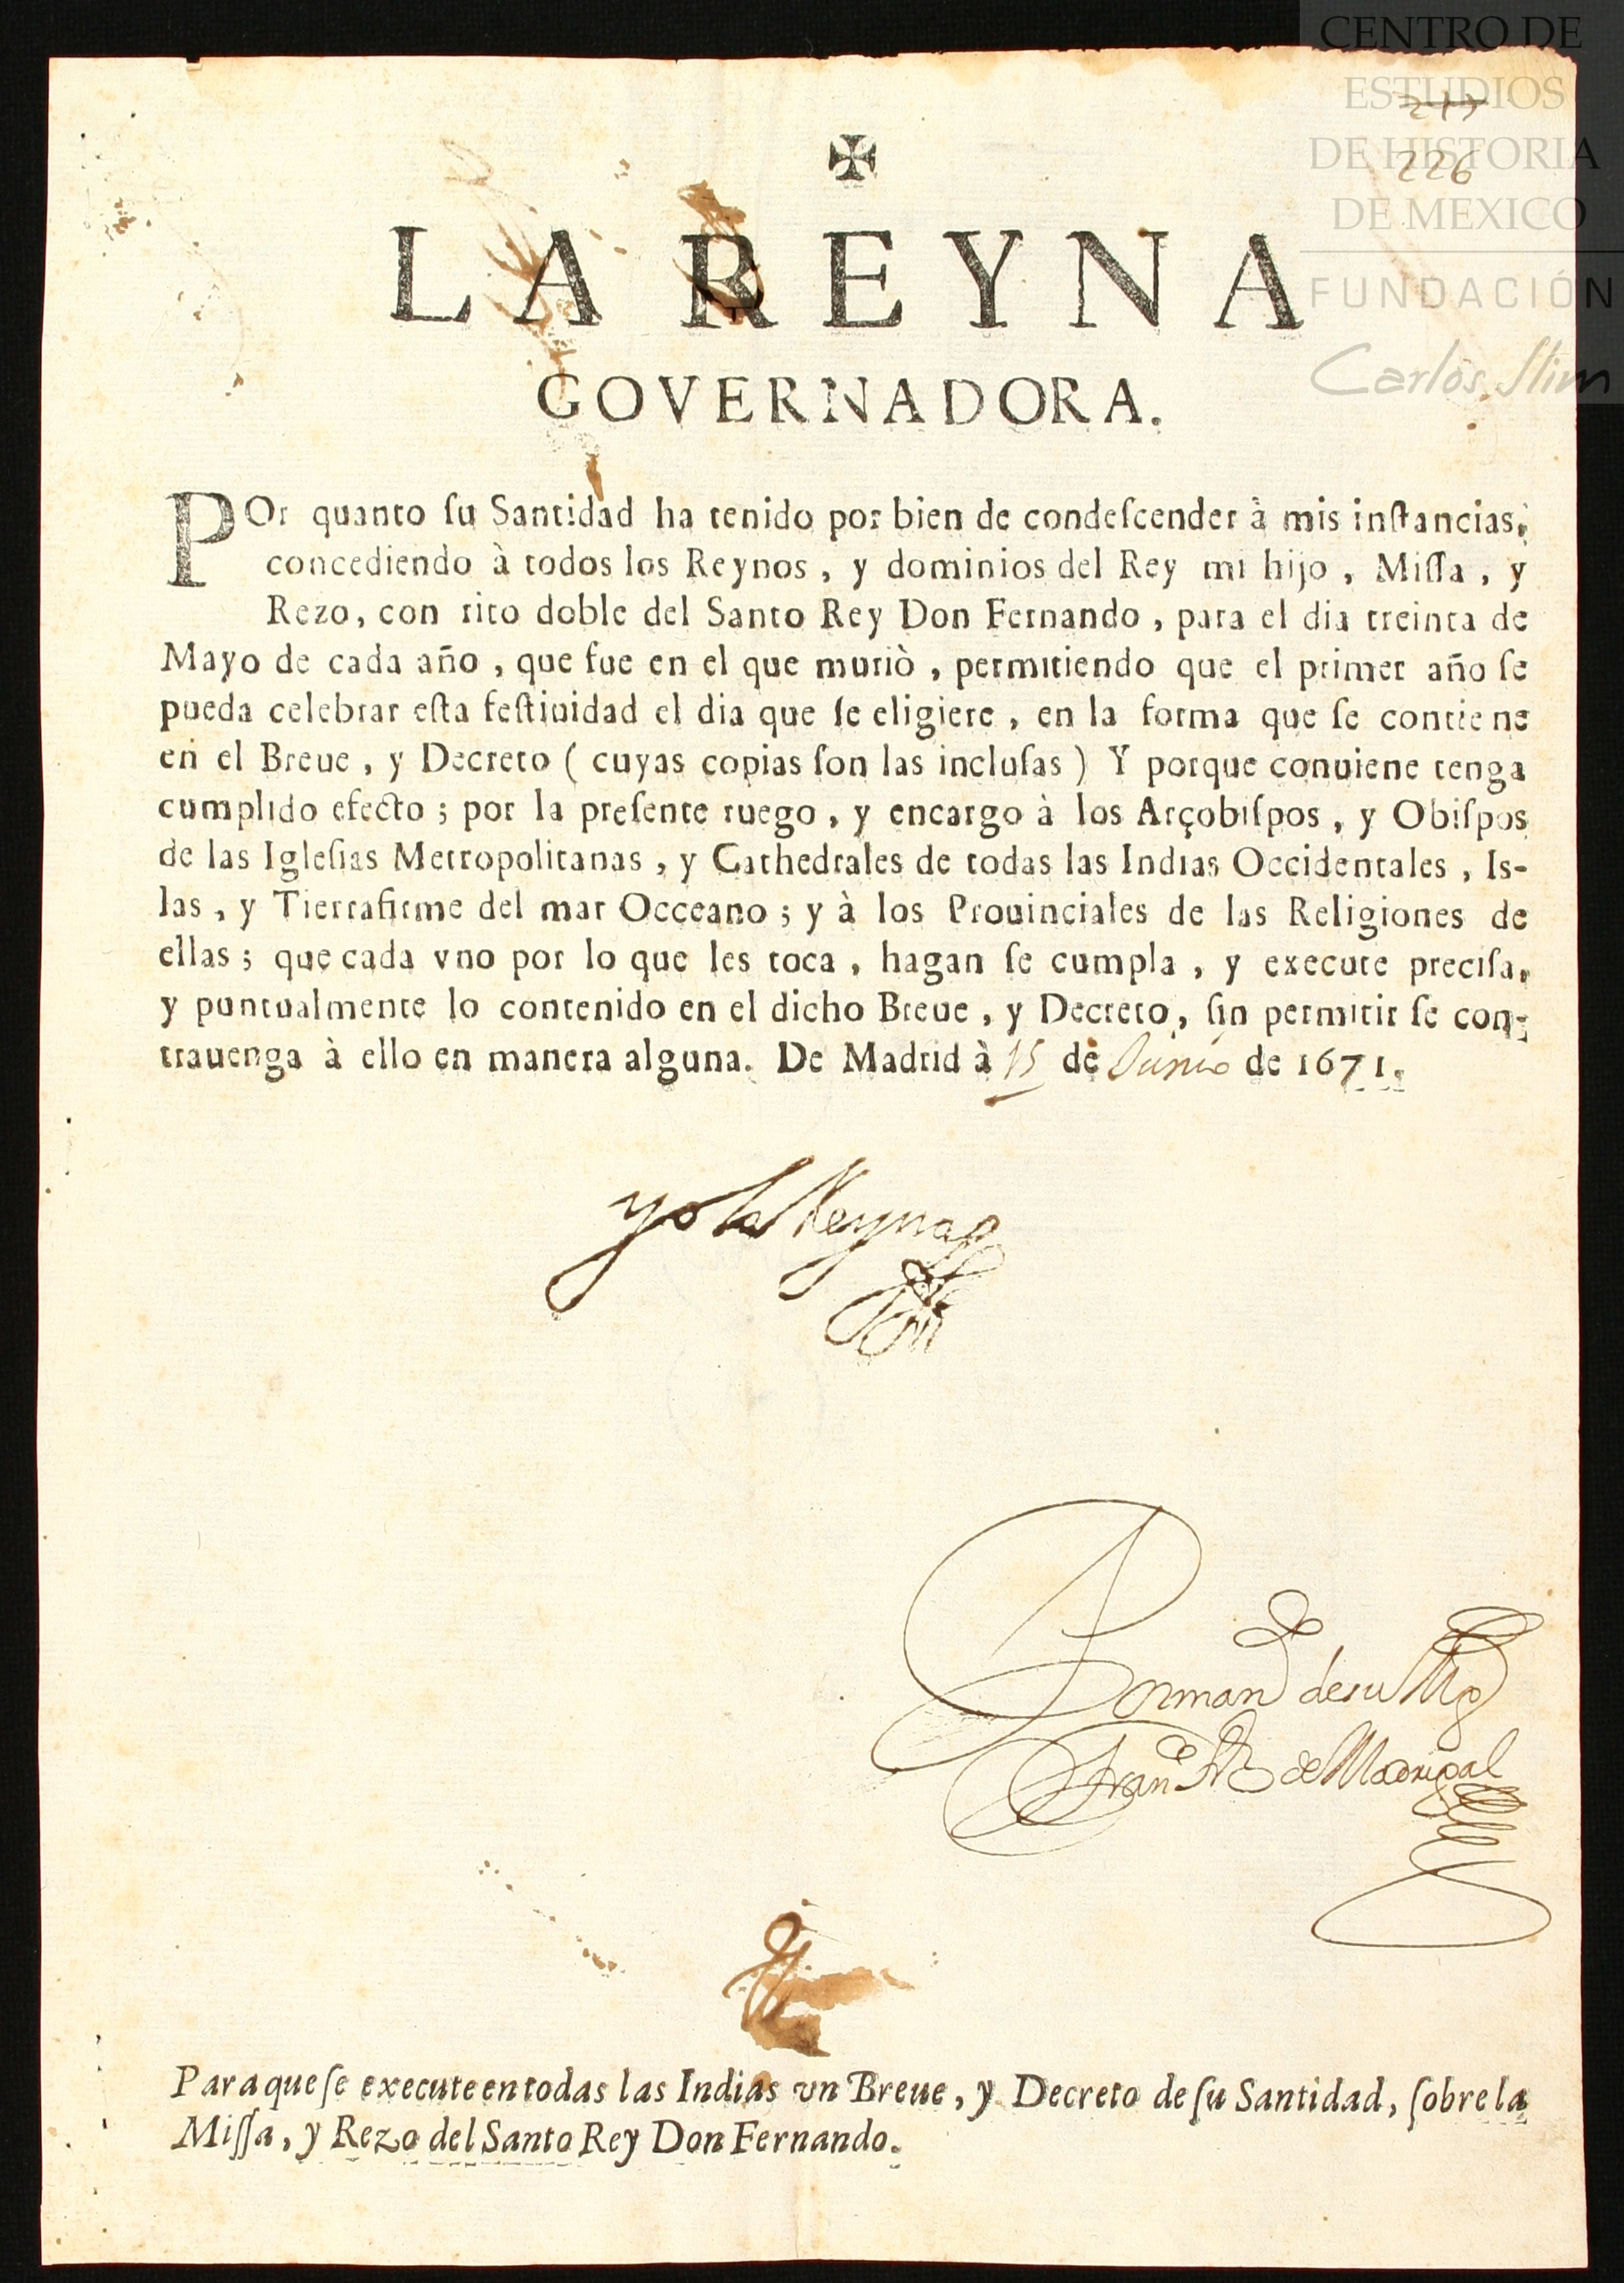 CENTRO DE
ESTUDIOS
DE HISTORIA
DE MEXICO
FUNDACIÓN
Carlos Slim
226
✠
LA REYNA
GOVERNADORA.
POr quanto ſu Santidad ha tenido por bien de condeſcender à mis inſtancias,
concediendo à todos los Reynos, y dominios del Rey mi hijo, Miſſa, y
Rezo, con rito doble del Santo Rey Don Fernando, para el dia treinta de
Mayo de cada año, que fue en el que muriò, permitiendo que el primer año ſe
pueda celebrar eſta feſtiuidad el dia que ſe eligiere, en la forma que ſe contiene
en el Breue, y Decreto (cuyas copias ſon las incluſas) Y porque conuiene tenga
cumplido efecto; por la preſente ruego, y encargo à los Arçobiſpos, y Obiſpos
de las Igleſias Metropolitanas, y Cathedrales de todas las Indias Occidentales, Is-
las, y Tierrafirme del mar Occeano; y à los Prouinciales de las Religiones de
ellas; que cada vno por lo que les toca, hagan ſe cumpla, y execute preciſa,
y puntualmente lo contenido en el dicho Breue, y Decreto, ſin permitir ſe con-
trauenga à ello en manera alguna. De Madrid à 15 de Junio de 1671.
yo la Reyna
Por man.do de su Mg.d
Fran.co de Madrigal
Para que ſe execute en todas las Indias vn Breue, y Decreto de ſu Santidad, ſobre la
Miſſa, y Rezo del Santo Rey Don Fernando.